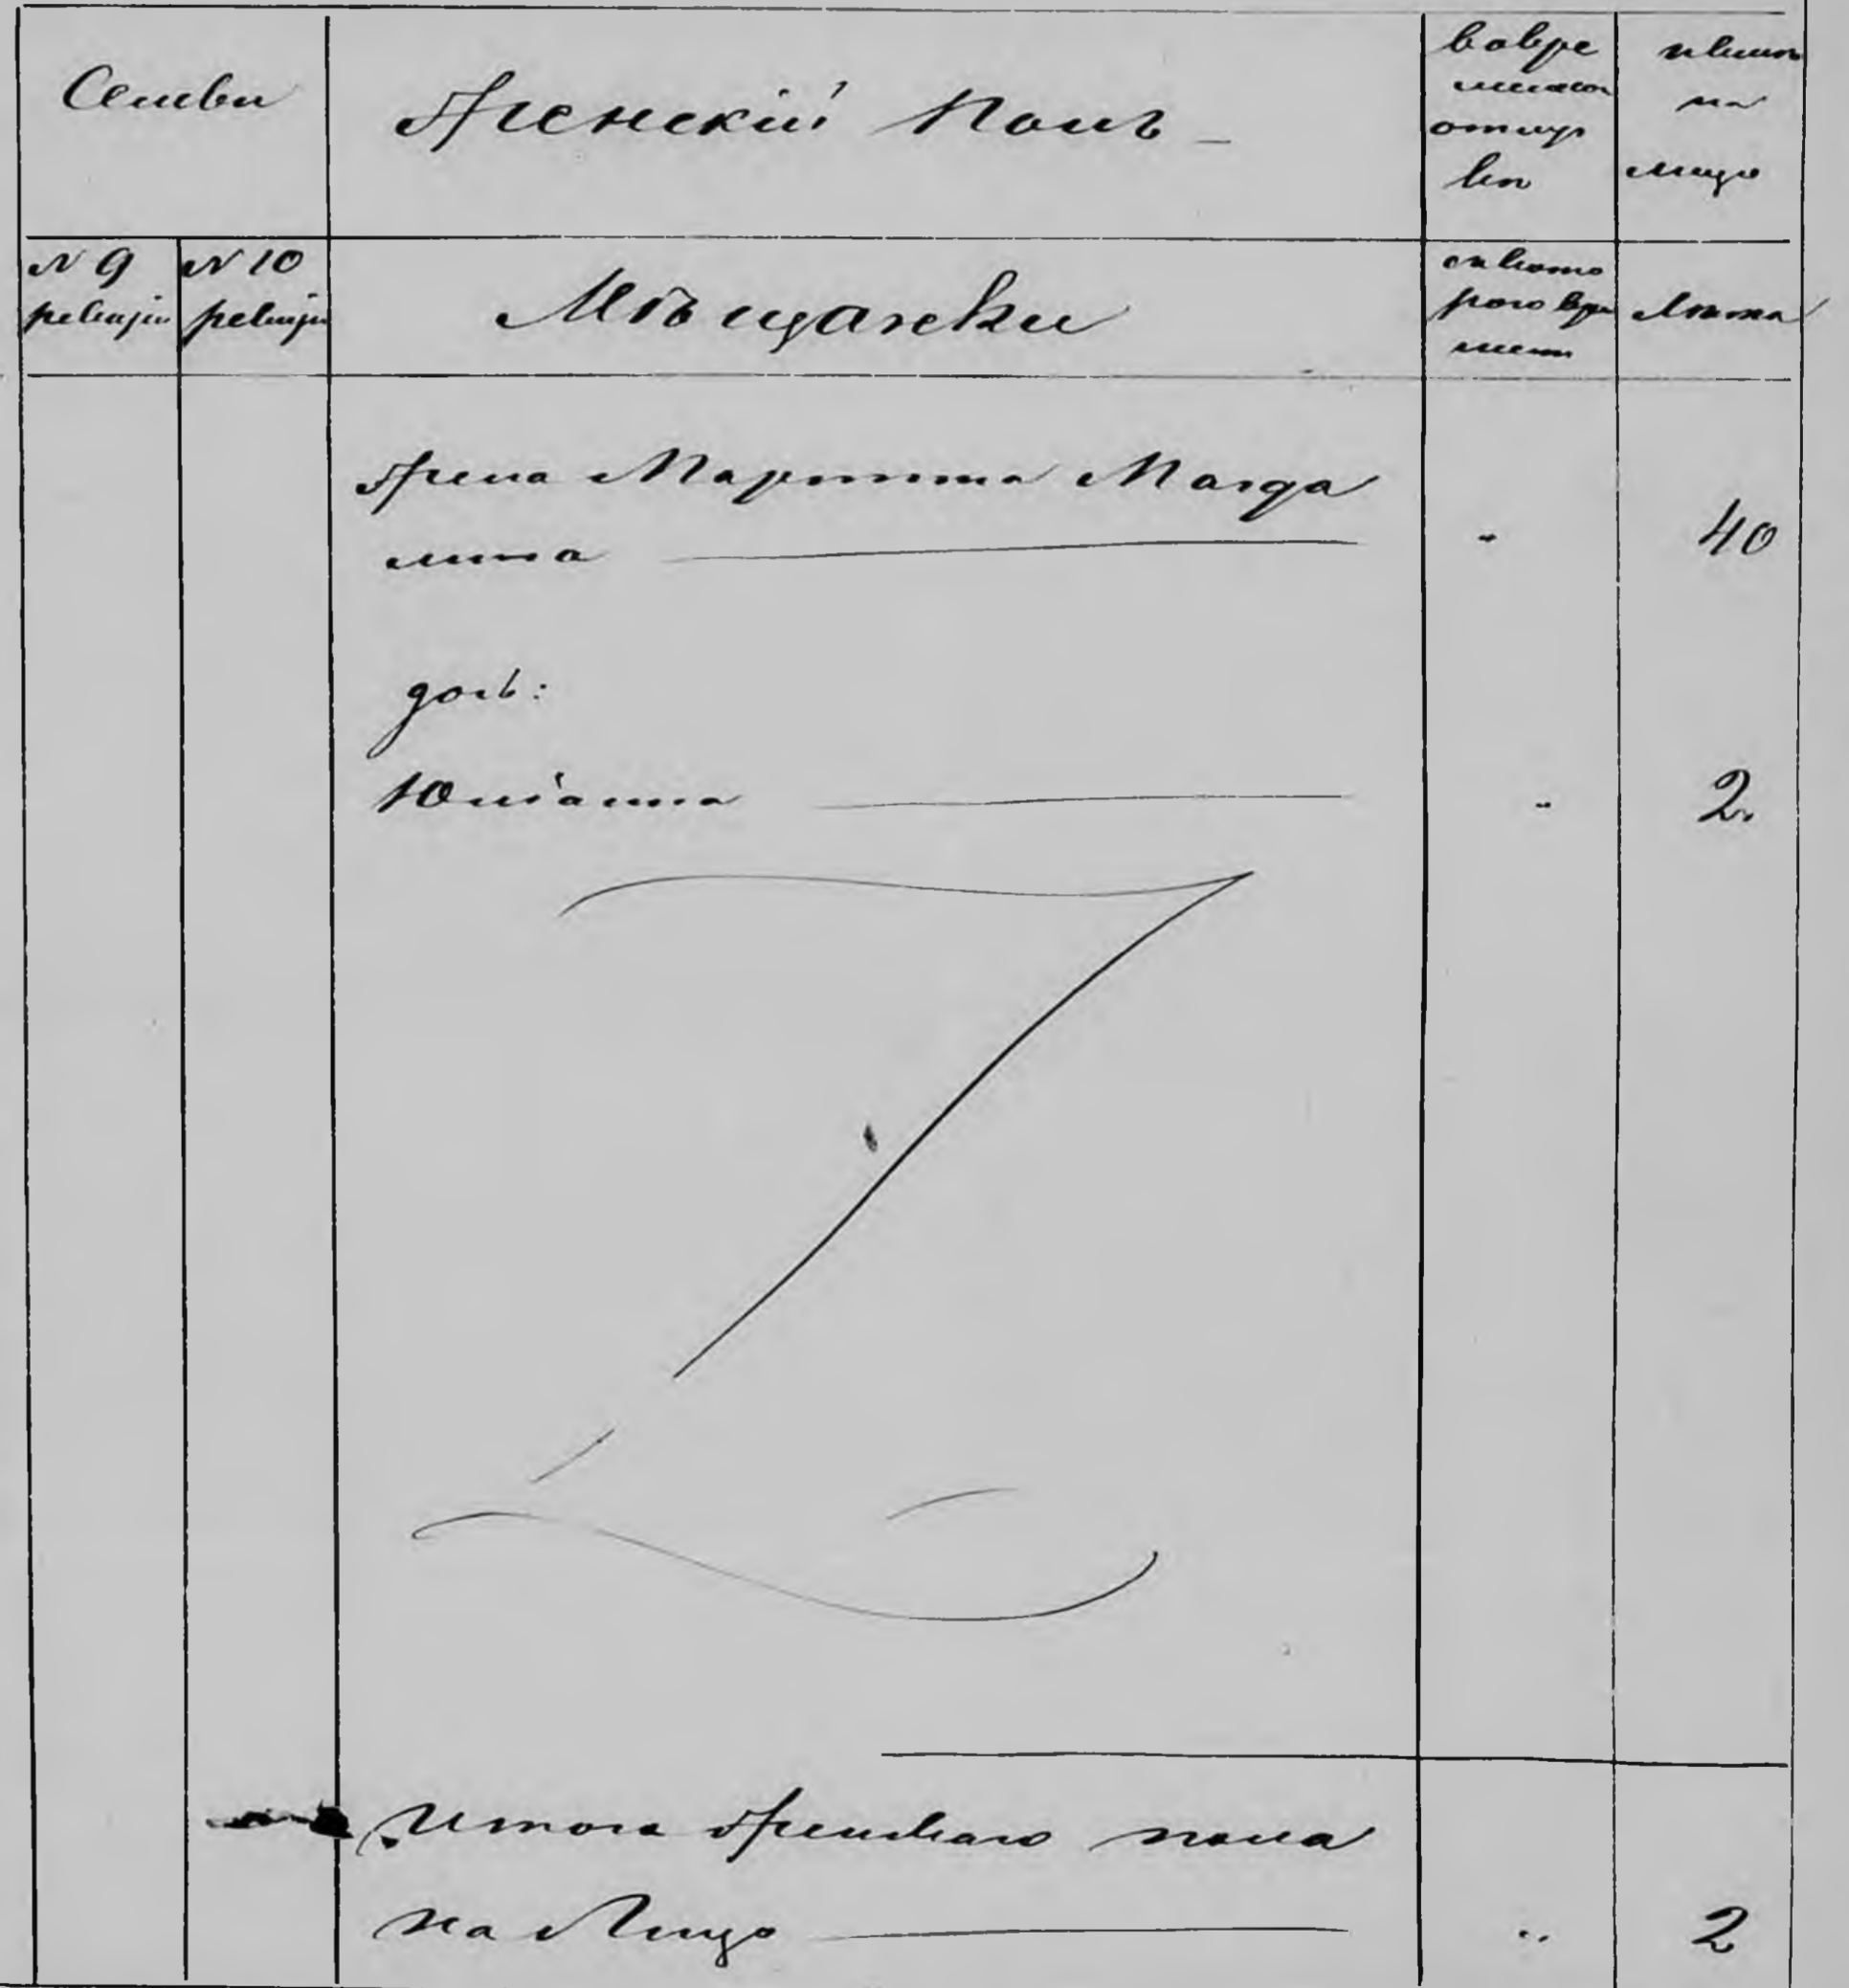 Семьи
Женскій Полъ
во вре
менной
отлуч
ки
ныне
на
лицо
N 9
ревизіи
N 10
ревизіи
Мѣщанки
съ кото
рого вре
мени
Лѣта
Жена Мартина Магда
лина
40
дочь:
Юліанна
2.
Итого женскаго пола
на Лицо
2